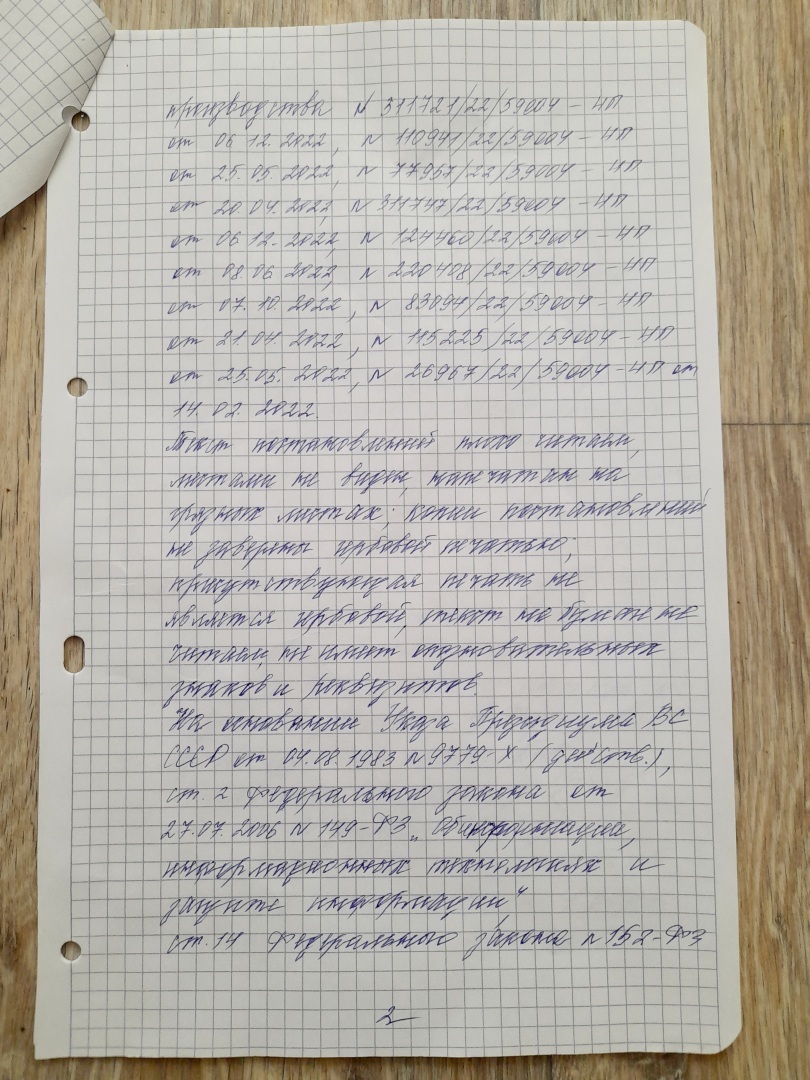 производства N 311721/22/59004 - ИП
от 06 12. 2022, N 110941/22/59004 - ИП
от 25. 05. 2022, N 77967/22/59004 - ИП
от 20. 04. 2022, N 311747/22/59004 - ИП
от 06 12. 2022, N 124460/22/59004 - ИП
от 08. 06 2022, N 220408/22/59004 - ИП
от 07. 10. 2022, N 83094/22/59004 - ИП
от 21. 04. 2022, N 115225/22/59004 - ИП
от 25. 05. 2022, N 26967/22/59004 - ИП от
14. 02. 2022.
Текст постановлений плохо читаем,
местами не виден, напечатан на
грязных листах; копии постановлений
не заверены гербовой печатью;
присутствующая печать не
является гербовой, текст на бумаге не
читаем, не имеет опознавательных
знаков и реквизитов.
На основании Указа Президиума ВС
СССР от 04. 08. 1983 N 9779-X (действ.),
ст. 2 Федерального закона от
27.07. 2006 N 149-ФЗ „Об информации,
информационных технологиях и
защите информации",
ст. 14 Федерального закона N 152-ФЗ
2